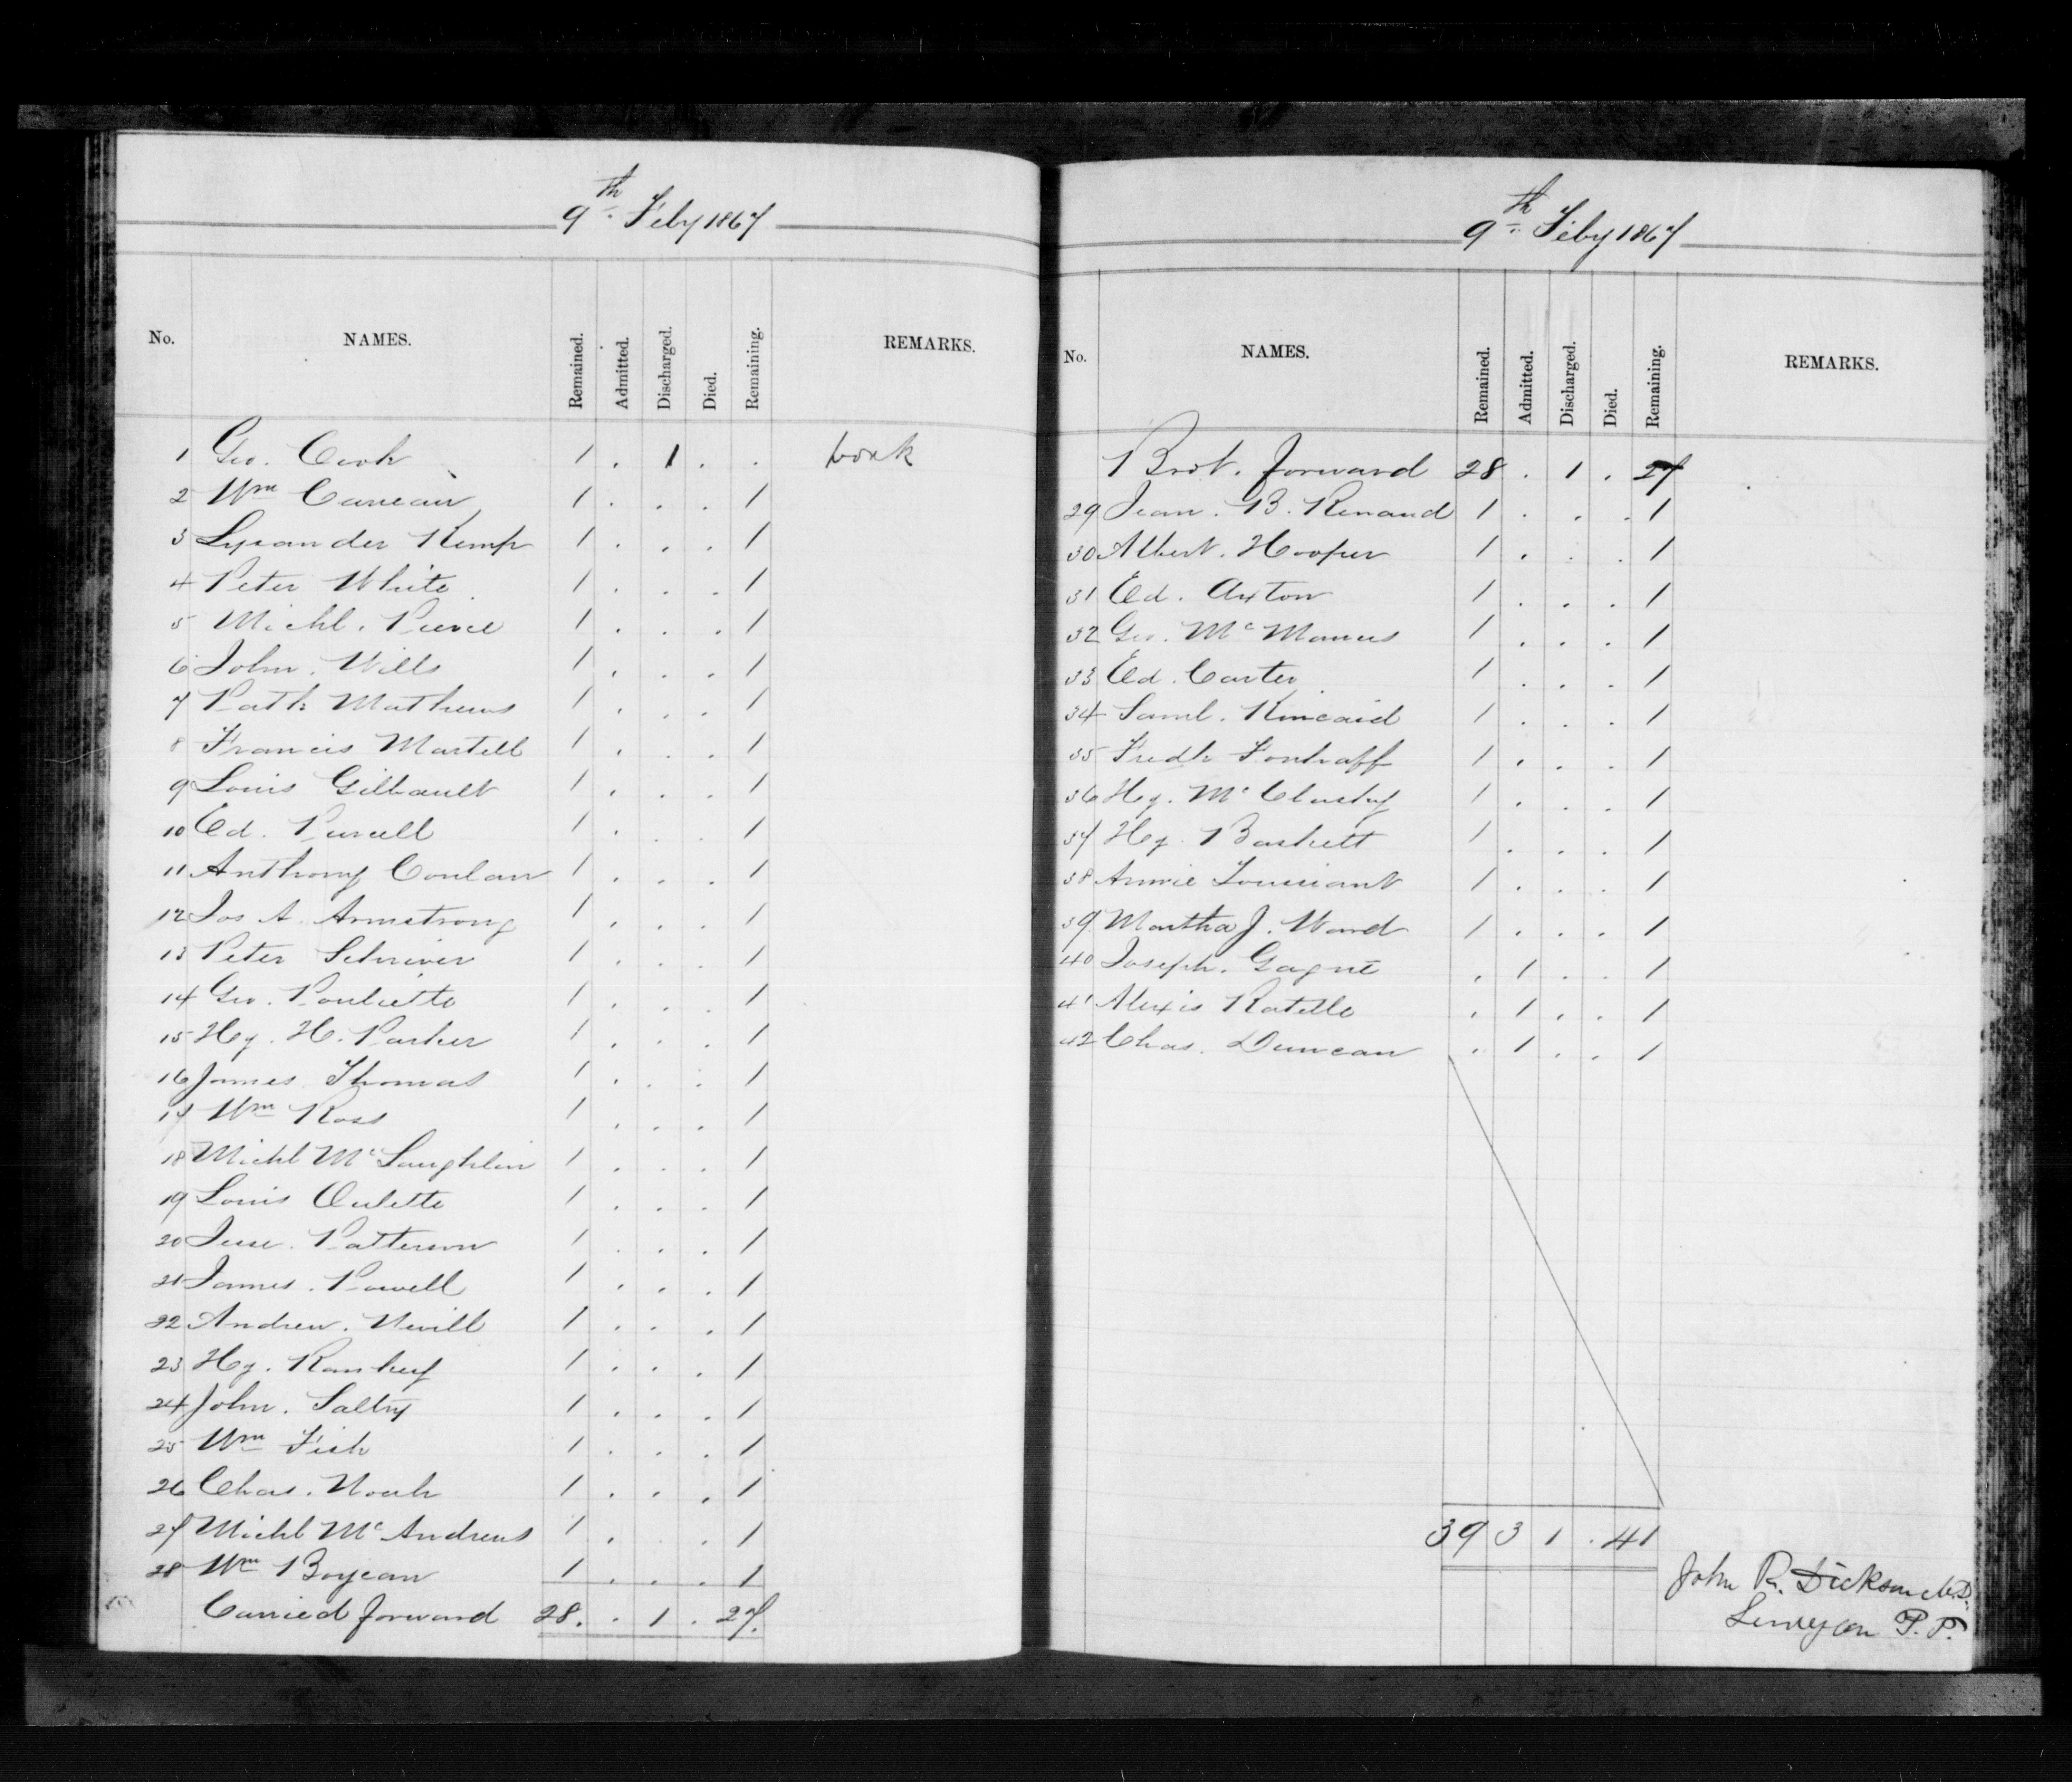 9th Feby 1867
No. NAMES. Remained. Admitted. Discharged. Died. Remaining. REMARKS.
1 Geo. Cook 1 . 1 . . work
2 Wm Careau 1 . . . 1
3 Lysander Kemp 1 . . . 1
4 Peter White 1 . . . 1
5 Michl. Pierce 1 . . . 1
6 John. Wills 1 . . . 1
7 Patk Mathews 1 . . . 1
8 Francis Martell 1 . . . 1
9 Louis Gilbault 1 . . . 1
10 Ed. Purcell 1 . . . 1
11 Anthony Conlan 1 . . . 1
12 Jos A. Armstrong 1 . . . 1
13 Peter Schriver 1 . . . 1
14 Geo. Pouliette 1 . . . 1
15 Hy. H. Parker 1 . . . 1
16 James Thomas 1 . . . 1
17 Wm Ross 1 . . . 1
18 Michl McLaughlin 1 . . . 1
19 Louis Oulette 1 . . . 1
20 Jesse. Patterson 1 . . . 1
21 James. Powell 1 . . . 1
22 Andrew. Nevill 1 . . . 1
23 Hy. Rankey 1 . . . 1
24 John. Saltry 1 . . . 1
25 Wm Fish 1 . . . 1
26 Chas. Noah 1 . . . 1
27 Michl McAndrews 1 . . 1
28 Wm Boyean 1 . . . 1
Carried forward 28. . 1 . 27.
9th Feby 1867
No. NAMES. Remained. Admitted. Discharged. Died. Remaining. REMARKS.
Brot. forward 28 . 1 . 27
29 Jean. B. Renaud 1 . . . 1
30 Albert. Hooper 1 . . . 1
31 Ed. Axton 1 . . . 1
32 Geo. McManus 1 . . . 1
33 Ed. Carter 1 . . . 1
34 Saml. Kincaid 1 . . . 1
35 Fredk 1 . . . 1
36 Hy. McCluskey 1 . . . 1
37 Hy. Baskett 1 . . . 1
38 Annie 1 . . . 1
39 Martha J. Ward 1 . . . 1
40 Joseph. Gagne . 1 . . 1
41 Alexis Ratelle . 1 . . 1
42 Chas. Duncan . 1 . . 1
39 3 1 . 41
John R. Dickson M.D.
Surgeon P. P.